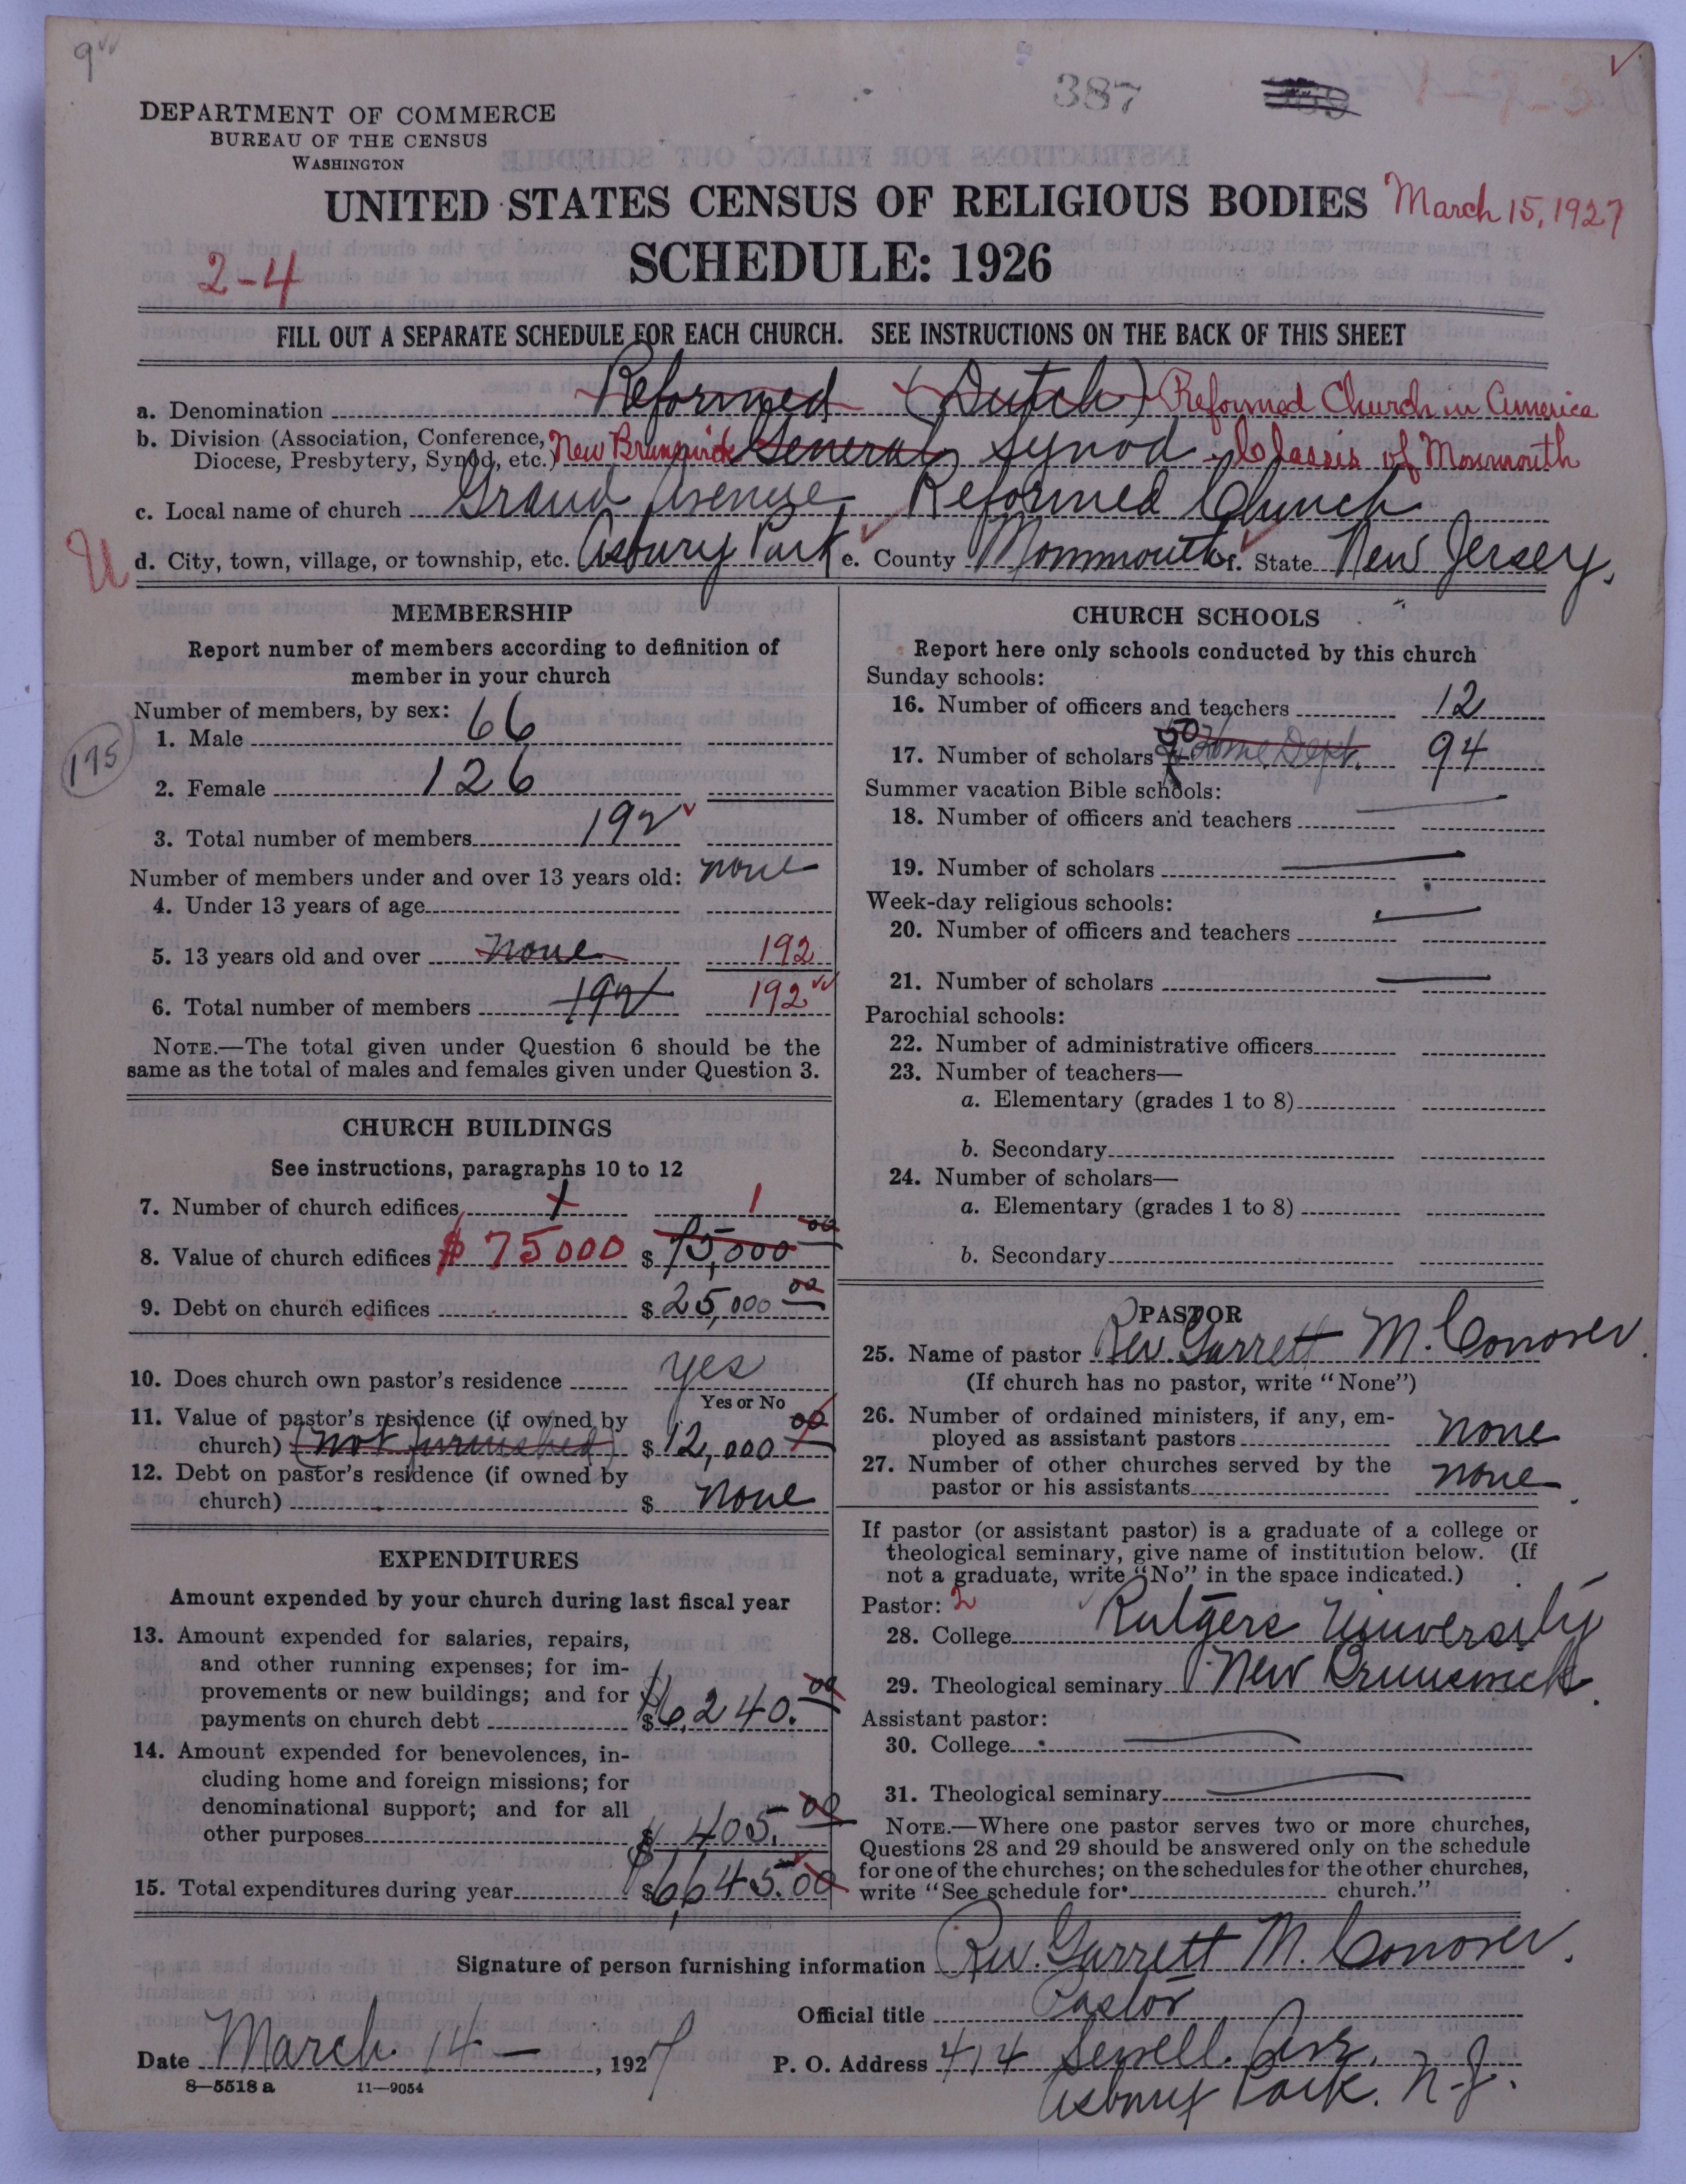 387
DEPARTMENT OF COMMERCE
BUREAU OF THE CENSUS
WASHINGTON
UNITED STATES CENSUS OF RELIGIOUS BODIES March 15, 1927
SCHEDULE: 1926
2-4
FILL OUT A SEPARATE SCHEDULE FOR EACH CHURCH. SEE INSTRUCTIONS ON THE BACK OF THIS SHEET
a. Denomination Reformed (Dutch) Reformed Church in America
b. Division (Association, Conference, Diocese, Presbytery, Synod, etc.) New Brunswick General Synod - Classis of Monmouth
c. Local name of church Grand Avenue Reformed Church
U
d. City, town, village, or township, etc. Asbury Park e. County Monmouth f. State New Jersey.
MEMBERSHIP
Report number of members according to definition of
member in your church
Number of members, by sex:
1. Male 66
175
2. Female 126
3. Total number of members 192
Number of members under and over 13 years old:
4. Under 13 years of age none
5. 13 years old and over none 192
6. Total number of members 192 192
NOTE.—The total given under Question 6 should be the
same as the total of males and females given under Question 3.
CHURCH BUILDINGS
See instructions, paragraphs 10 to 12
7. Number of church edifices 1 1
8. Value of church edifices $75000 $ 75,000 00
9. Debt on church edifices $ 25,000 00
10. Does church own pastor's residence yes
Yes or No
11. Value of pastor's residence (if owned by
church) (not furnished) $ 12,000 00
12. Debt on pastor's residence (if owned by
church) $ none
EXPENDITURES
Amount expended by your church during last fiscal year
13. Amount expended for salaries, repairs,
and other running expenses; for im-
provements or new buildings; and for
payments on church debt $ 6,240.00
14. Amount expended for benevolences, in-
cluding home and foreign missions; for
denominational support; and for all
other purposes $ 405.00
15. Total expenditures during year $ 6,645.00
CHURCH SCHOOLS
Report here only schools conducted by this church
Sunday schools:
16. Number of officers and teachers 12
17. Number of scholars 50 Home Dept. 94
Summer vacation Bible schools:
18. Number of officers and teachers —
19. Number of scholars —
Week-day religious schools:
20. Number of officers and teachers —
21. Number of scholars —
Parochial schools:
22. Number of administrative officers
23. Number of teachers—
a. Elementary (grades 1 to 8)
b. Secondary
24. Number of scholars—
a. Elementary (grades 1 to 8)
b. Secondary
PASTOR
25. Name of pastor Rev. Garrett M. Conover
(If church has no pastor, write "None")
26. Number of ordained ministers, if any, em-
ployed as assistant pastors none
27. Number of other churches served by the
pastor or his assistants none
If pastor (or assistant pastor) is a graduate of a college or
theological seminary, give name of institution below. (If
not a graduate, write "No" in the space indicated.)
Pastor: 2
28. College Rutgers University
29. Theological seminary New Brunswick
Assistant pastor:
30. College —
31. Theological seminary —
NOTE.—Where one pastor serves two or more churches,
Questions 28 and 29 should be answered only on the schedule
for one of the churches; on the schedules for the other churches,
write "See schedule for church."
Signature of person furnishing information Rev. Garrett M. Conover.
Official title Pastor
Date March 14 —, 1927
P. O. Address 414 Sewell Ave.
Asbury Park. N.J.
8—5518 a 11—9054